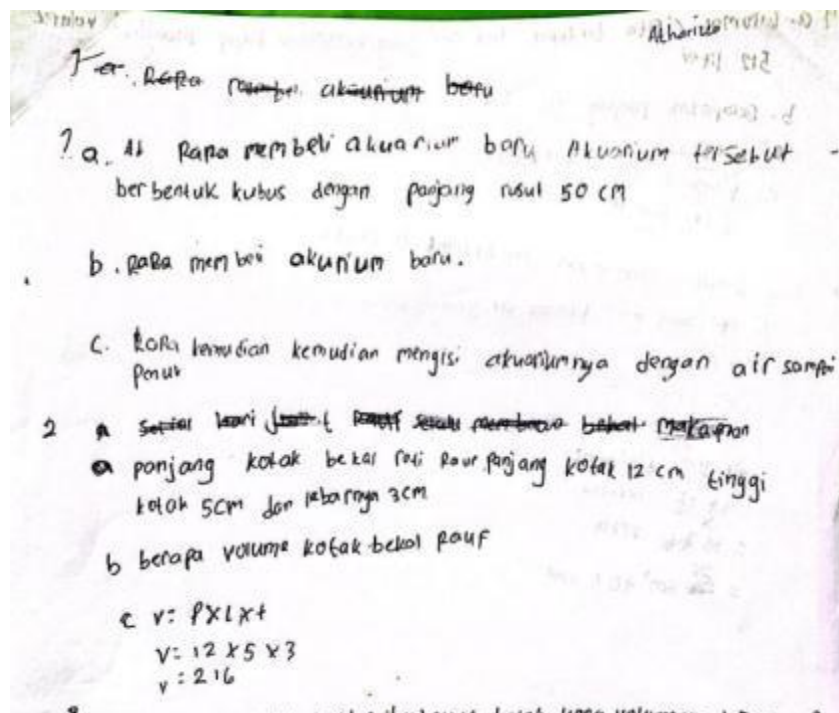 Atharizz
1 a. Rafa membeli akuarium baru
1 a. Rafa membeli akuarium baru Akuarium tersebut
berbentuk kubus dengan panjang rusuk 50 cm
b. Rafa membeli akurium baru.
c. Rafa kemudian kemudian mengisi akuariumnya dengan air sampai
penuh
2 a Setiap hari Rauf selalu membawa bekal makanan
a panjang kotak bekal roti Rauf panjang kotak 12 cm tinggi
kotak 5cm dan lebarnya 3cm
b berapa volume kotak bekal Rauf
c v: P x l x t
v: 12 x 5 x 3
v: 216